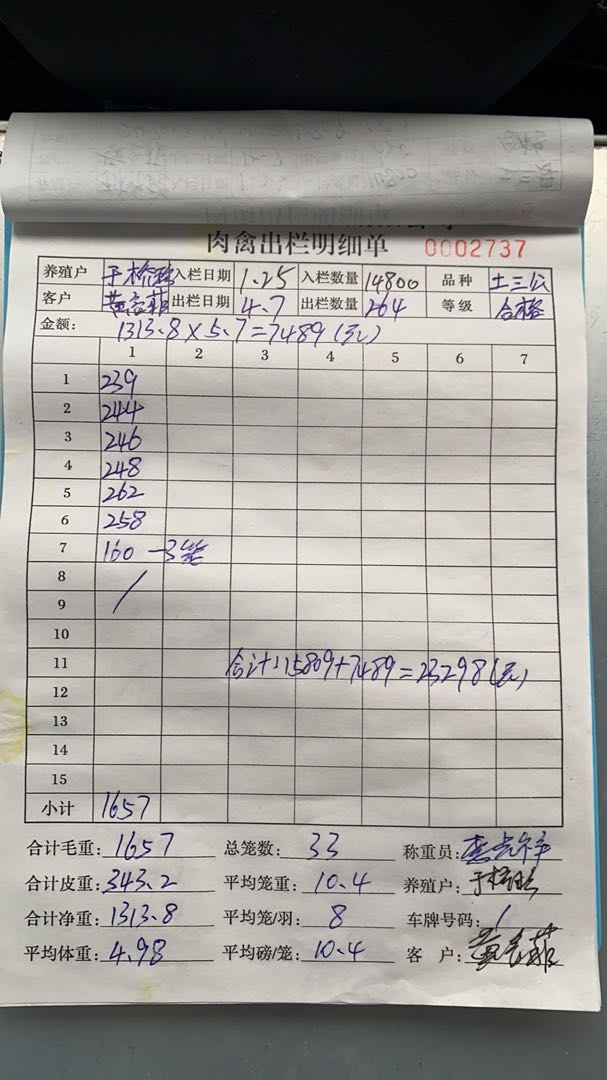 肉禽出栏明细单 0002737
养殖户 于 入栏日期 1.25 入栏数量 14800 品种 土三公
客户 出栏日期 4.7 出栏数量 264 等级 合格
金额: 1313.8×5.7=7489(元)
1 2 3 4 5 6 7
1 239
2 244
3 246
4 248
5 262
6 258
7 160 —3笼
8 /
9
10
11 合计:15809+7489=23298(元)
12
13
14
15
小计 1657
合计毛重: 1657 总笼数: 33 称重员:
合计皮重: 343.2 平均笼重: 10.4 养殖户: 于
合计净重: 1313.8 平均笼/羽: 8 车牌号码: /
平均体重: 4.98 平均磅/笼: 10.4 客 户: 黄